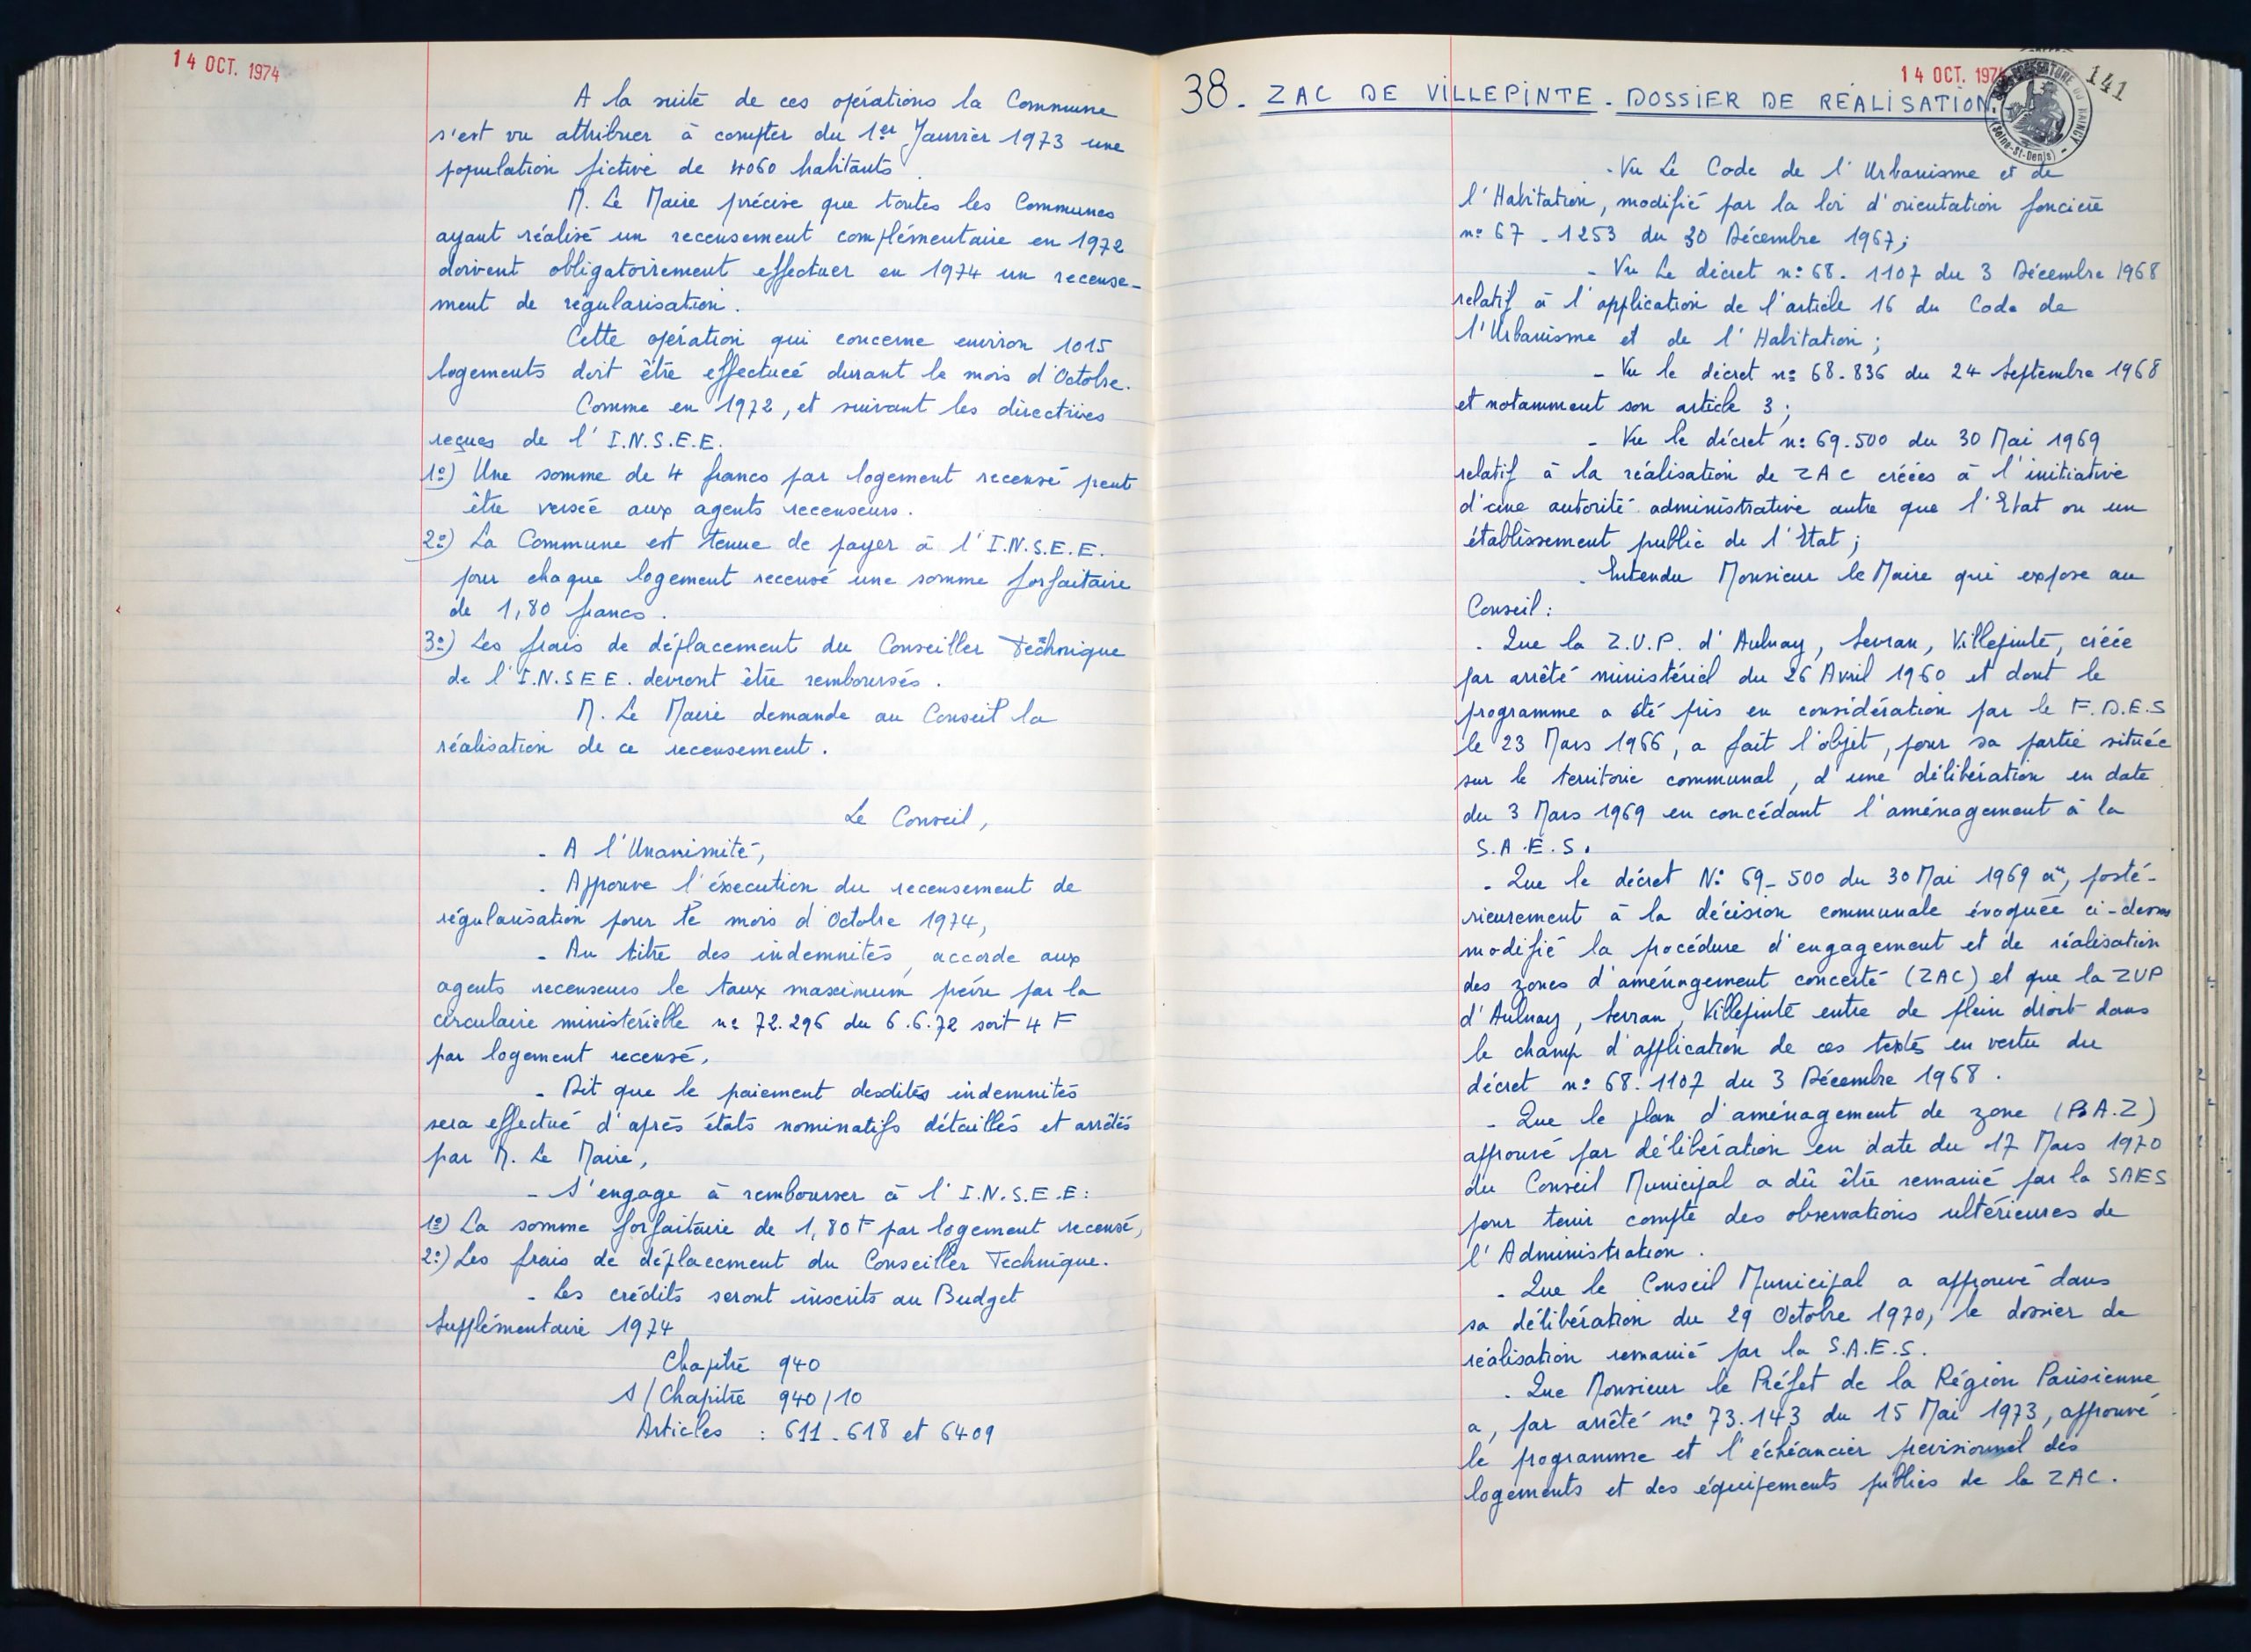 14 OCT. 1974
A la suite de ces opérations la Commune
s'est vu attribuer à compter du 1er Janvier 1973 une
population fictive de 4060 habitants.
M. Le Maire précise que toutes les Communes
ayant réalisé un recensement complémentaire en 1972
doivent obligatoirement effectuer en 1974 un recense-
ment de régularisation.
Cette opération qui concerne environ 1015
logements doit être effectuée durant le mois d'Octobre.
Comme en 1972, et suivant les directives
reçues de l'I.N.S.E.E.
1º) Une somme de 4 francs par logement recensé peut
être versée aux agents recenseurs.
2º) La Commune est tenue de payer à l'I.N.S.E.E.
pour chaque logement recensé une somme forfaitaire
de 1,80 francs.
3º) Les frais de déplacement du Conseiller Technique
de l'I.N.S.E.E. devront être remboursés.
M. Le Maire demande au Conseil la
réalisation de ce recensement.
Le Conseil,
- A l'Unanimité,
- Approuve l'éxecution du recensement de
régularisation pour le mois d'Octobre 1974,
- Au titre des indemnités, accorde aux
agents recenseurs le taux maximum prévu par la
circulaire ministérielle nº 72.296 du 6.6.72 soit 4 F
par logement recensé,
- Dit que le paiement desdites indemnités
sera effectué d'après états nominatifs détaillés et arrêtés
par M. Le Maire,
- S'engage à rembourser à l'I.N.S.E.E:
1º) La somme forfaitaire de 1,80 F par logement recensé,
2º) Les frais de déplacement du Conseiller Technique.
- Les crédits seront inscrits au Budget
Supplémentaire 1974
Chapitre 940
S/Chapitre 940/10
Articles : 611-618 et 6409
14 OCT. 1974
141
SOUS-PREFECTURE DU RAINCY
(Seine-St-Denis)
38. ZAC DE VILLEPINTE - DOSSIER DE REALISATION.
- Vu Le Code de l'Urbanisme et de
l'Habitation, modifié par la loi d'orientation foncière
nº 67-1253 du 30 Décembre 1967;
- Vu Le décret nº 68.1107 du 3 Décembre 1968
relatif à l'application de l'article 16 du Code de
l'Urbanisme et de l'Habitation;
- Vu le décret nº 68.836 du 24 Septembre 1968
et notamment son article 3;
- Vu le décret nº 69.500 du 30 Mai 1969
relatif à la réalisation de ZAC créées à l'initiative
d'une autorité administrative autre que l'Etat ou un
établissement public de l'Etat;
- Entendu Monsieur le Maire qui expose au
Conseil:
- Que la Z.U.P. d'Aulnay, Sevran, Villepinte, créée
par arrêté ministériel du 26 Avril 1960 et dont le
programme a été pris en considération par le F.D.E.S
le 23 Mars 1966, a fait l'objet, pour sa partie située
sur le territoire communal, d'une délibération en date
du 3 Mars 1969 en concédant l'aménagement à la
S.A.E.S.
- Que le décret Nº 69-500 du 30 Mai 1969 a, posté-
rieurement à la décision communale évoquée ci-dessus
modifié la procédure d'engagement et de réalisation
des zones d'aménagement concerté (ZAC) et que la ZUP
d'Aulnay, Sevran, Villepinte entre de plein droit dans
le champ d'application de ces textes en vertu du
décret nº 68.1107 du 3 Décembre 1968.
- Que le plan d'aménagement de zone (P.A.Z)
approuvé par délibération en date du 17 Mars 1970
du Conseil Municipal a dû être remanié par la SAES
pour tenir compte des observations ultérieures de
l'Administration.
- Que le Conseil Municipal a approuvé dans
sa délibération du 29 Octobre 1970, le dossier de
réalisation remanié par la S.A.E.S.
- Que Monsieur le Préfet de la Région Parisienne
a, par arrêté nº 73.143 du 15 Mai 1973, approuvé
le programme et l'échéancier prévisionnel des
logements et des équipements publics de la ZAC.